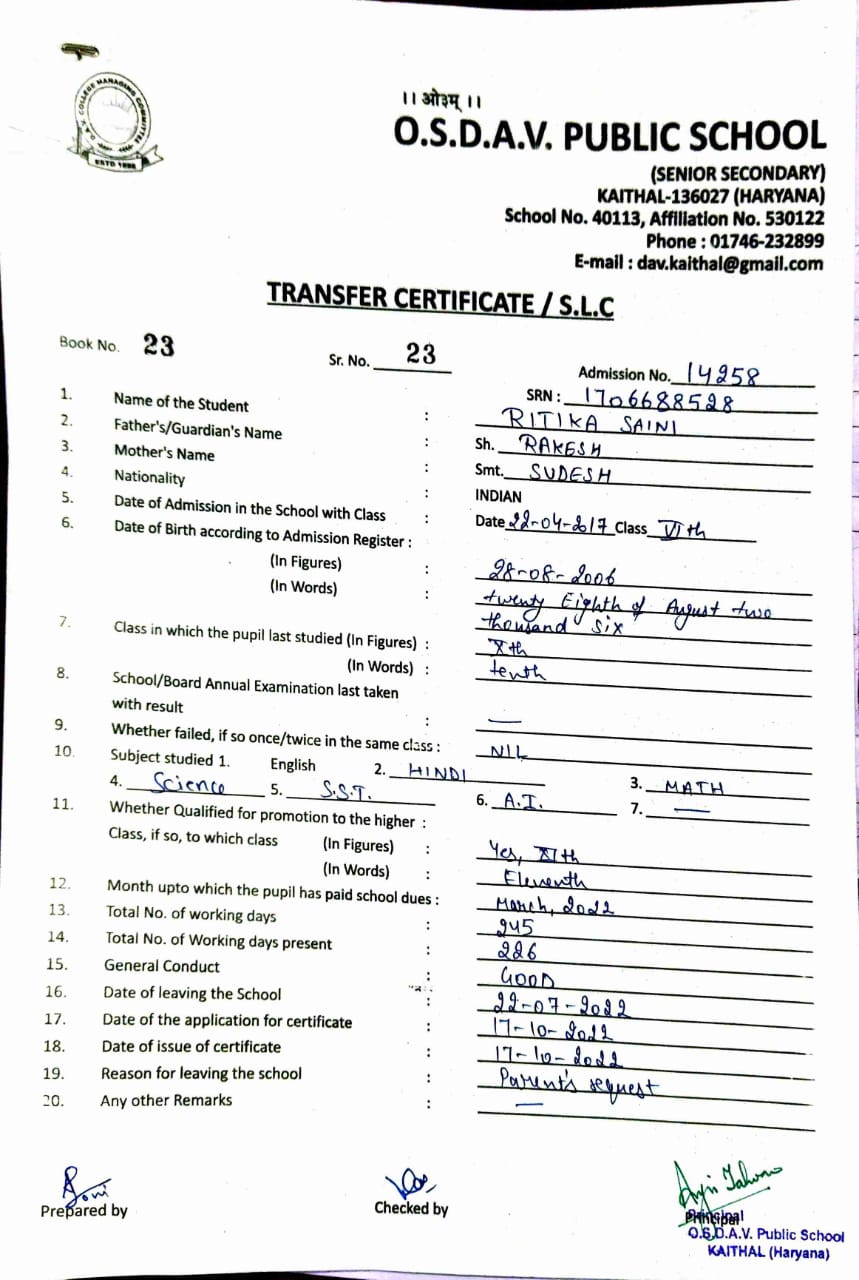 D.A.V. COLLEGE MANAGING COMMITTEE
ESTD 1886
।। ओ३म् ।।
O.S.D.A.V. PUBLIC SCHOOL
(SENIOR SECONDARY)
KAITHAL-136027 (HARYANA)
School No. 40113, Affiliation No. 530122
Phone : 01746-232899
E-mail : dav.kaithal@gmail.com
TRANSFER CERTIFICATE / S.L.C
Book No. 23 Sr. No. 23 Admission No. 14258
SRN : 1706688528
1. Name of the Student : RITIKA SAINI
2. Father's/Guardian's Name : Sh. RAKESH
3. Mother's Name : Smt. SUDESH
4. Nationality : INDIAN
5. Date of Admission in the School with Class : Date 22-04-2017 Class VIth
6. Date of Birth according to Admission Register :
(In Figures) : 28-08-2006
(In Words) : twenty Eighth of August two
thousand six
7. Class in which the pupil last studied (In Figures) : Xth
(In Words) : tenth
8. School/Board Annual Examination last taken
with result : —
9. Whether failed, if so once/twice in the same class : NIL
10. Subject studied 1. English 2. HINDI 3. MATH
4. Science 5. S.S.T. 6. A.I. 7. —
11. Whether Qualified for promotion to the higher :
Class, if so, to which class (In Figures) : Yes, XIth
(In Words) : Eleventh
12. Month upto which the pupil has paid school dues : March, 2022
13. Total No. of working days : 245
14. Total No. of Working days present : 226
15. General Conduct : GOOD
16. Date of leaving the School : 22-07-2022
17. Date of the application for certificate : 17-10-2022
18. Date of issue of certificate : 17-10-2022
19. Reason for leaving the school : Parent's request
20. Any other Remarks : —
Soni
Prepared by Checked by Principal
Principal
O.S.D.A.V. Public School
KAITHAL (Haryana)